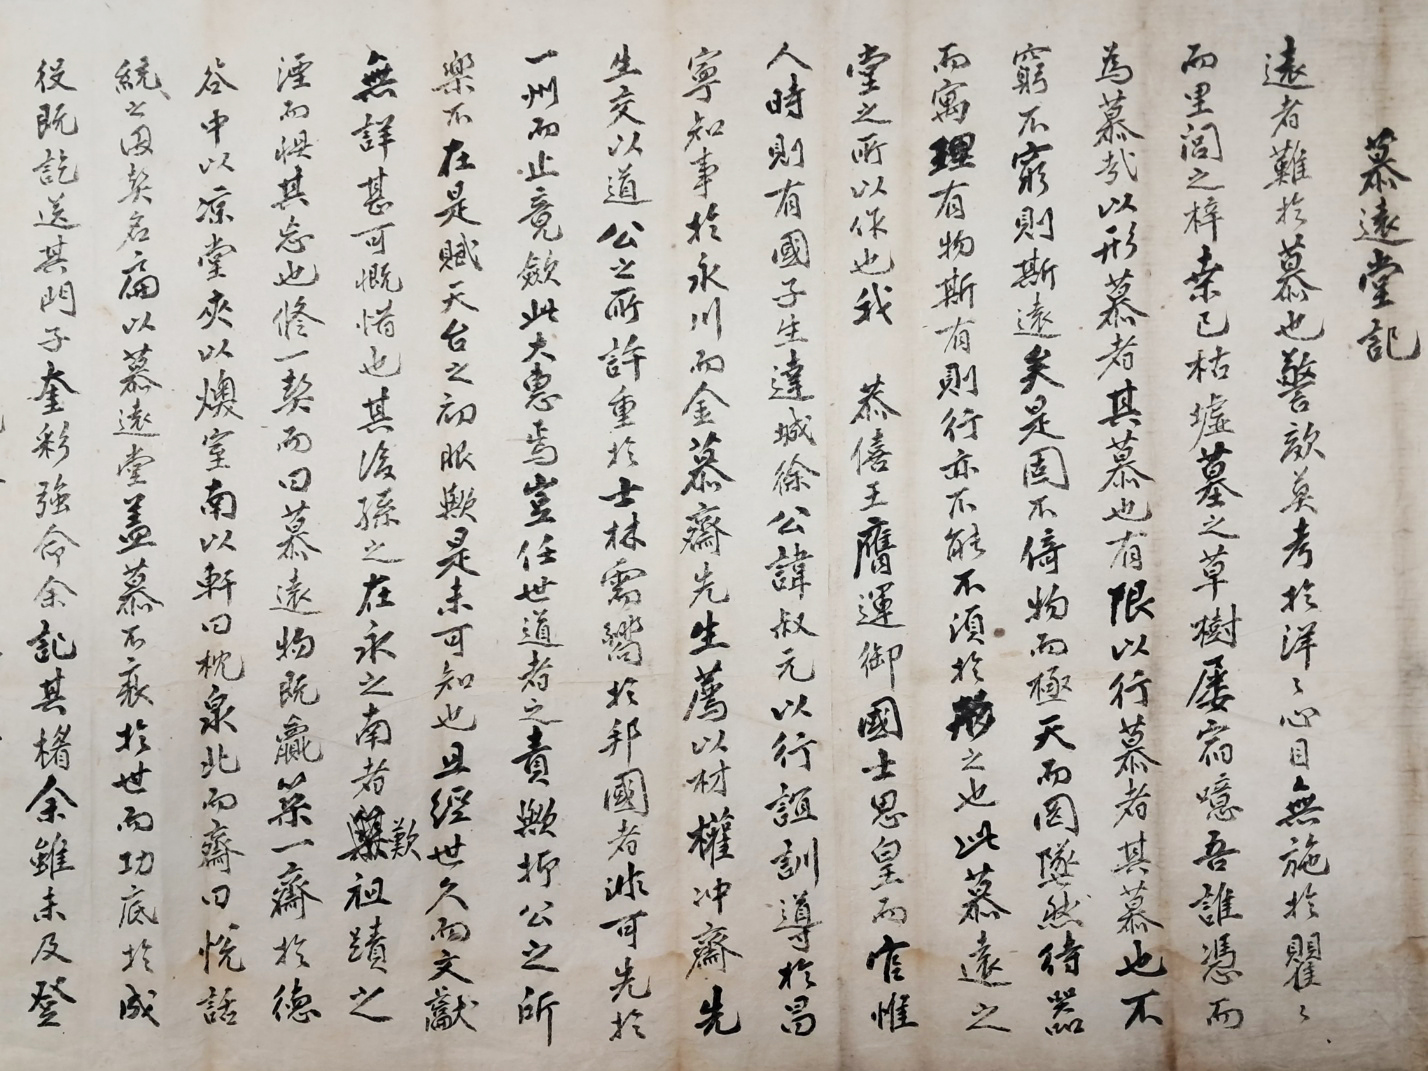 慕遠堂記
遠者難於慕也警欬莫考於洋〻心目無施於瞿〻
而里閭之梓桒已枯墟墓之草樹屢宿噫吾誰憑而
為慕㢤以形慕者其慕也有限以行慕者其慕也不
窮不窮則斯遠矣是固不倚物而極天而罔墜然待器
而寓理有物斯有則行亦不能不須於形之也此慕遠之
堂之所以作也我 恭僖王膺運御國士思皇而官惟
人時則有國子生達城徐公諱叔元以行誼訓導於昌
寧知事於永川而金慕齋先生薦以材權冲齋先
生交以道公之所許重於士林需嚮於邦國者非可先於
一州而止竟斂此大惠焉豈任世道者之責歟抑公之所
樂不在是賦天台之初服歟是未可知也且經世久而文獻
無詳甚可慨惜也其後孫之在永之南者歎祖蹟之
湮而惧其忘也修一契而曰慕遠物既贏築一齋於德
谷中以凉堂夾以燠室南以軒曰枕泉北而齋曰悅話
統之因契名扁以慕遠堂盖慕不衰於世而功底於成
役既訖送其門子奎彩強命余記其楣余雖未及登